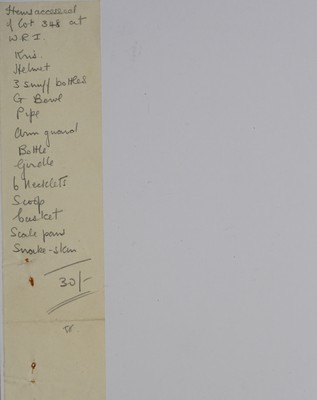 Items accessed
of lot 348 at
W.R.I.
Kris.
Helmet
3 snuff bottles
G Bowl
Pipe
Arm guard
Bottle
Girdle
6 Necklets
Scoop
basket
Scale pans
Snake-skin
30/-